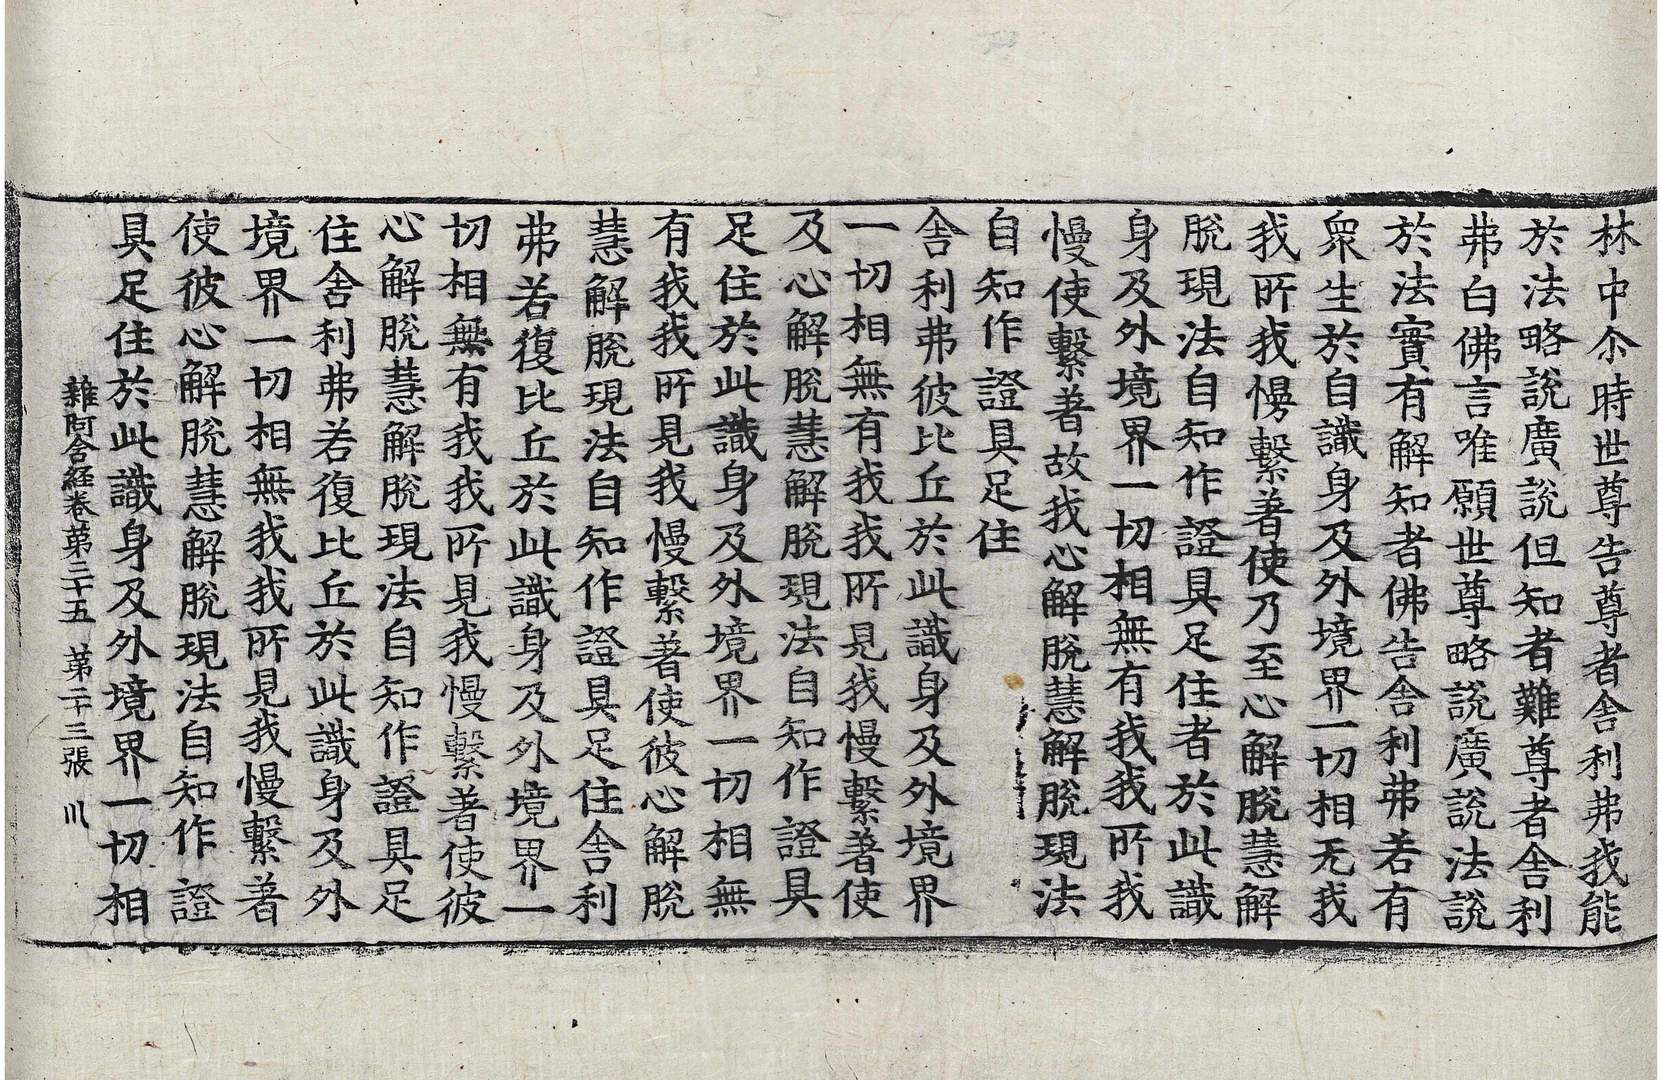 林中尒時世尊告尊者舍利弗我能
於法略說廣說但知者難尊者舍利
弗白佛言唯願世尊略說廣說法說
於法實有解知者佛告舍利弗若有
衆生於自識身及外境界一切相无我
我所我慢繫著使乃至心解脫慧解
脫現法自知作證具足住者於此識
身及外境界一切相無有我我所我
慢使繫著故我心解脫慧解脫現法
自知作證具足住
舍利弗彼比丘於此識身及外境界
一切相無有我我所見我慢繫著使
及心解脫慧解脫現法自知作證具
足住於此識身及外境界一切相無
有我我所見我慢繫著使彼心解脫
慧解脫現法自知作證具足住舍利
弗若復比丘於此識身及外境界一
切相無有我我所見我慢繫著使彼
心解脫慧解脫現法自知作證具足
住舍利弗若復比丘於此識身及外
境界一切相無我我所見我慢繫著
使彼心解脫慧解脫現法自知作證
具足住於此識身及外境界一切相
雜阿含経卷第三十五 第二十三張 川